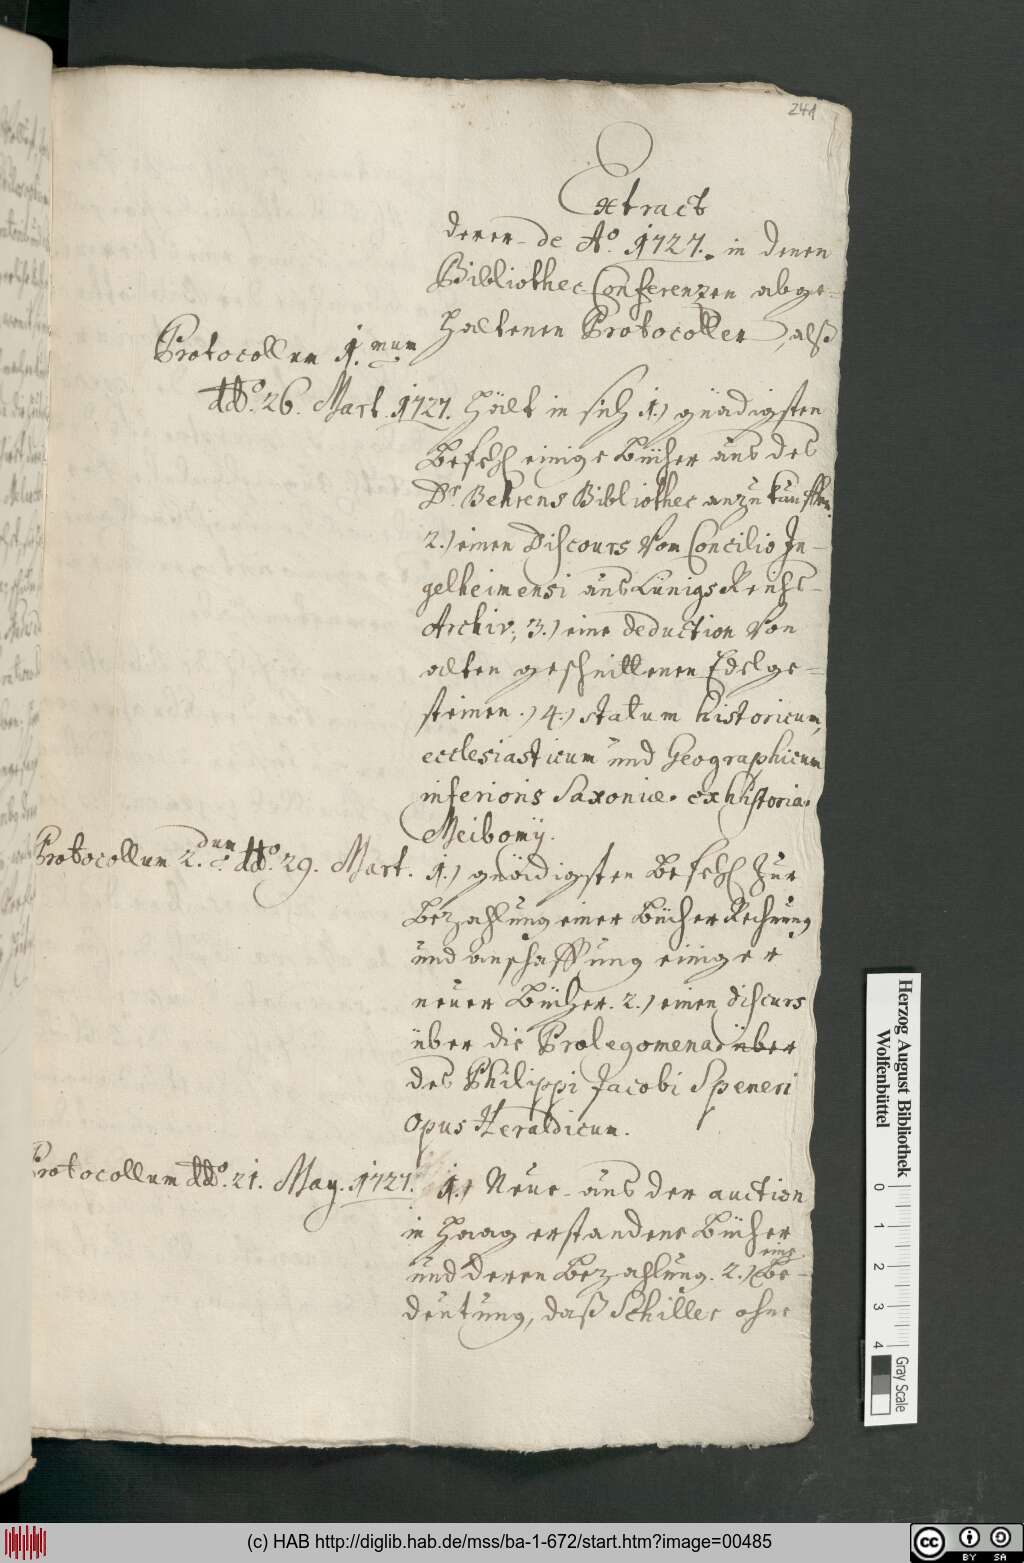 241
Extract
derer de Ao. 1727. in denen
Bibliothec-Conferenzen abge-
haltenen Protocollen, alß
Protocollum 1.mum
ddo. 26. Mart. 1727. hält in sich 1.) gnädigsten
Befehl einige Bücher aus des
Dr. Behrens Bibliothec anzukauffen.
2.) einen Discours von Concilio In-
gelheimensi aus Lünigs Reichs-
Archiv; 3.) eine deduction von
alten geschnittenen Edelge-
steinen.) 4.) statum historicum,
ecclesiasticum und Geographicum
inferioris Saxoniæ. ex historia.
Meibomÿ.
Protocollum 2.dum ddo. 29. Mart. 1.) gnädigsten Befehl zur
Bezahlung einer Bücher Rechnung
und anschaffung einiger
neuer Bücher. 2.) einen discurs
über die Prolegomena über
des Philippi Jacobi Speneri
Opus Heraldicum.
Protocollum ddo. 21. May. 1727. 1.) Neue aus der auction
in Haag erstandene Bücher
und deren Bezahlung. 2.) eine Be-
deutung, daß Schiller ohne
Herzog August Bibliothek
Wolfenbüttel
0 1 2 3 4
Gray Scale
(c) HAB http://diglib.hab.de/mss/ba-1-672/start.htm?image=00485
cc BY SA